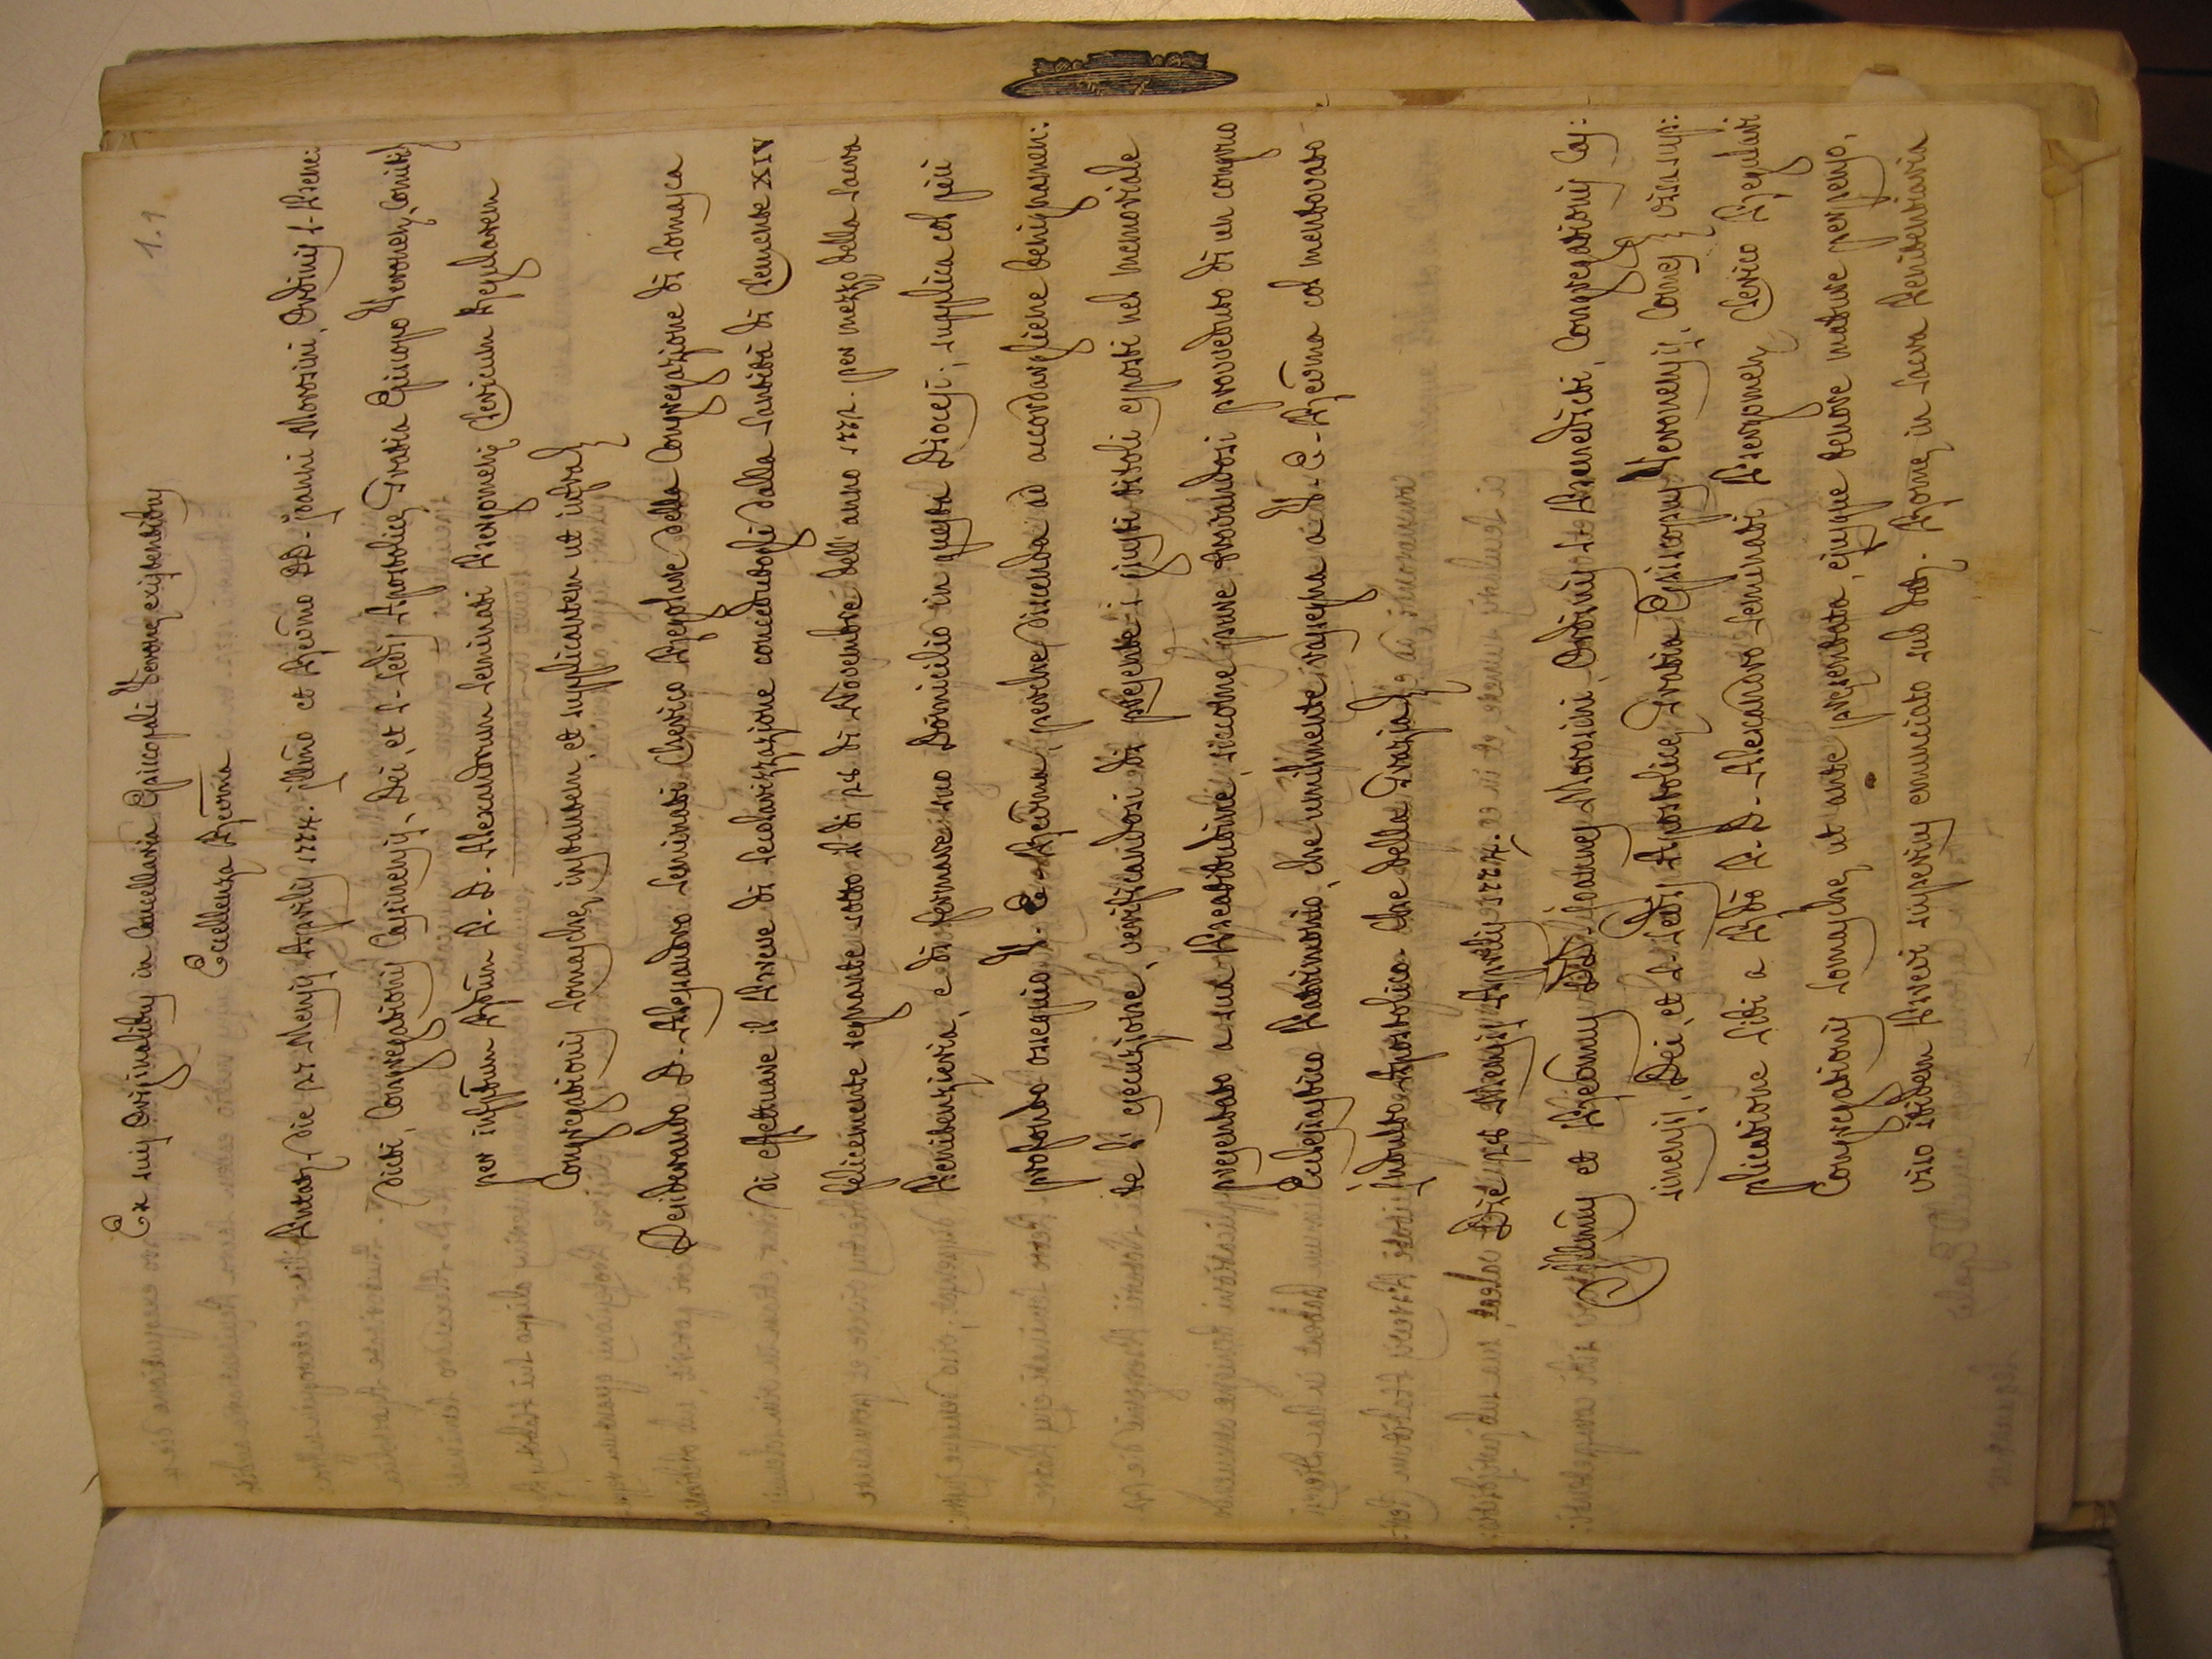 1.1
Ex suis Originalibus in Cancellaria Episcopali Veronę existentibus
Eccellenza Rev̄ma
die 27 Mensis Aprilis 1774. Illm̄o et Rev̄mo DD. Joanni Morosini, Ordinis S. Bene:
dicti, Congregationis Casinensis, Dei, et S. Sedis Apostolicę Gratia Episcopo Veronens, Comiti
per infrptum R. D. Alexandrum Seminati Bergomens Clericum Regularem
Congregationis Somaschę, instantem, et supplicantem ut infra
Desiderando D. Alessandro Seminati Cherico Regolare della Congregazione di Somasca
di effettuare il Breve di Secolarizzazione concedutogli dalla Santità di Clemente XIV
felicemente regnante sotto il dì 28 di Novembre dell'anno 1772. per mezzo della Sacra
Penitenzieria, e di fermare suo Domicilio in questa Diocesi; supplica col più
profondo ossequio V. E. Rev̄ma, perchè discenda ad accordargliene benignamen:
te l'esecuzione, verificandosi di presente i giusti titoli esposti nel memoriale
presentato a sua Beatitudine, siccome pure trovandosi proveduto di un congruo
Ecclesiastico Patrimonio, che umilmente rassegna a V. E. Rev̄ma col mentovato
Indulto Apostolico. Che della Grazia
Die 28 Mensis Aprilis 1774.
Illm̄us et Rev̄dmus DD. Joannes Morosini, Ordinis S. Benedicti, Congregationis Cas:
sinensis, Dei, et S. Sedis Apostolicę Gratia Episcopus Veronensis, Comes visa sup:
plicatione sibi a R. D. Alexandro Seminati Bergomens Clerico Regulari
Congregationis Somaschę, ut ante pręsentata, ejusque tenore mature perpenso,
viso itidem Brevi superius enunciato sub dat. Romę in Sacra Penitentiaria